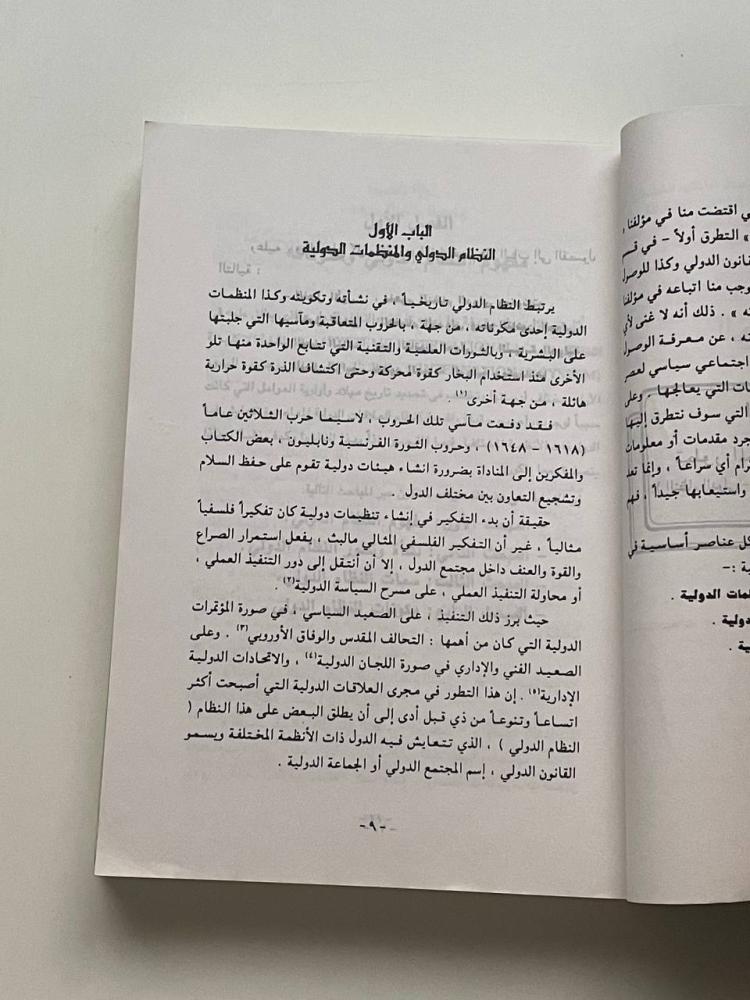 الباب الأول
النظام الدولي والمنظمات الدولية
يرتبط النظام الدولي تاريخياً ، في نشأته وتكوينه وكذا المنظمات
الدولية إحدى مكوناته ، من جهة ، بالحروب المتعاقبة ومآسيها التي جلبتها
على البشرية ، وبالثورات العلمية والتقنية التي تتابع الواحدة منها تلو
الأخرى منذ استخدام البخار كقوة محركة وحتى اكتشاف الذرة كقوة حرارية
هائلة ، من جهة أخرى(١) .
فقد دفعت مآسي تلك الحروب ، لاسيما حرب الثلاثين عاماً
(١٦١٨ – ١٦٤٨) ، وحروب الثورة الفرنسية ونابليون ، بعض الكتاب
والمفكرين إلى المناداة بضرورة انشاء هيئات دولية تقوم على حفظ السلام
وتشجيع التعاون بين مختلف الدول .
حقيقة أن بدء التفكير في إنشاء تنظيمات دولية كان تفكيراً فلسفياً
مثالياً ، غير أن التفكير الفلسفي المثالي مالبث ، بفعل استمرار الصراع
والقوة والعنف داخل مجتمع الدول ، إلا أن أنتقل إلى دور التنفيذ العملي ،
أو محاولة التنفيذ العملي ، على مسرح السياسة الدولية(٢) .
حيث برز ذلك التنفيذ ، على الصعيد السياسي ، في صورة المؤتمرات
الدولية التي كان من أهمها : التحالف المقدس والوفاق الأوروبي(٣) . وعلى
الصعيد الفني والإداري في صورة اللجان الدولية(٤) ، والاتحادات الدولية
الإدارية(٥) . إن هذا التطور في مجرى العلاقات الدولية التي أصبحت أكثر
اتساعاً وتنوعاً من ذي قبل أدى إلى أن يطلق البعض على هذا النظام (
النظام الدولي ) ، الذي تتعايش فيه الدول ذات الأنظمة المختلفة ويسمو
القانون الدولي ، إسم المجتمع الدولي أو الجماعة الدولية .
-٩-
اقتضت منا في مؤلفنا
» التطرق أولاً – في
قانون الدولي وكذا للوصول
منا اتباعه في مؤلفنا
» . ذلك أنه لا غنى لأي
، عن معرفة الوصول
اجتماعي سياسي لعصر
التي يعالجها . وعلى
التي سوف نتطرق إليها
مقدمات أو معلومات
أي سراعاً ، وإنما تعد
واستيعابها جيداً ، فهم
عناصر أساسية في
:–
الدولية .